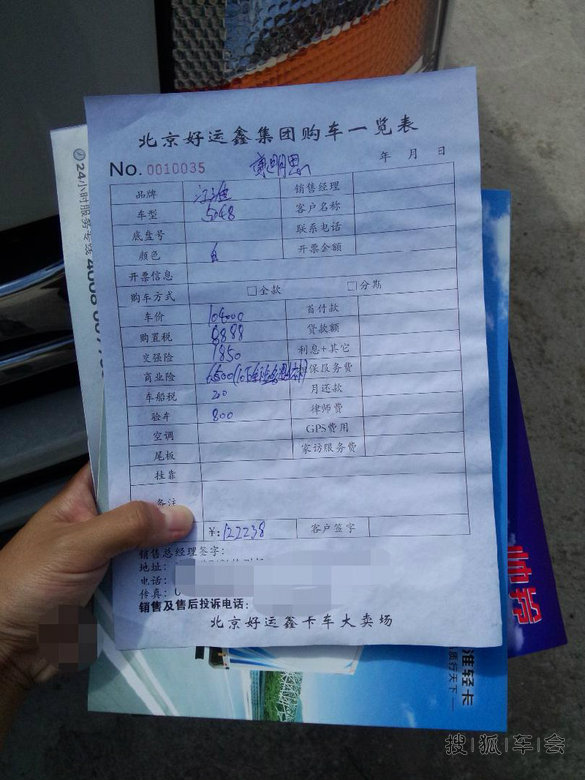 北京好运鑫集团购车一览表
No. 0010035 康明思 年 月 日
品牌 江淮 销售经理
车型 5048 客户名称
底盘号 联系电话
颜色 白 开票金额
开票信息
购车方式 □全款 □分期
车价 104000 首付款
购置税 8888 贷款额
交强险 1850 利息+其它
商业险 6500 保服务费
车船税 200 月还款
验车 800 律师费
空调 GPS费用
尾板 家访服务费
挂靠
备注
¥: 122238 客户签字
销售总经理签字:
地址:
电话:
传真:
销售及售后投诉电话:
北京好运鑫卡车大卖场
24小时服务专线 4008
帅铃
淮轻卡
质行天下
搜狐车会